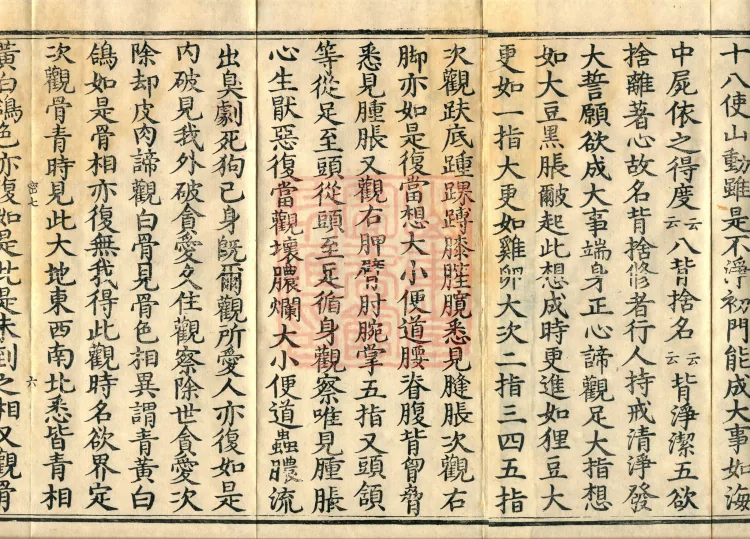 十八使山動雖是不淨初門能成大事如海
中屍依之得度云云八背捨名云云背淨潔五欲
捨離著心故名背捨修者行人持戒清淨發
大誓願欲成大事端身正心諦觀足大指想
如大豆黑脹起此想成時更進如狸豆大
更如一指大更如雞卵大次二指三四五指
次觀趺底踵踝膝悉見脹次觀右
脚亦如是復當想大小便道腰脊腹背胷脅
悉見腫脹又觀右胛臂肘腕掌五指又頭頷
等從足至頭從頭至足循身觀察唯見腫脹
心生厭惡復當觀壞膿爛大小便道蟲膿流
出臭劇死狗己身旣爾觀所愛人亦復如是
內破見我外破貪愛久住觀察除世貪愛次
除却皮肉諦觀白骨見骨色相異謂青黃白
鴿如是骨相亦復無我得此觀時名欲界定
次觀骨青時見此大地東西南北悉皆青相
密七 六
黃白鴿色亦復如是此是未到之相又觀骨